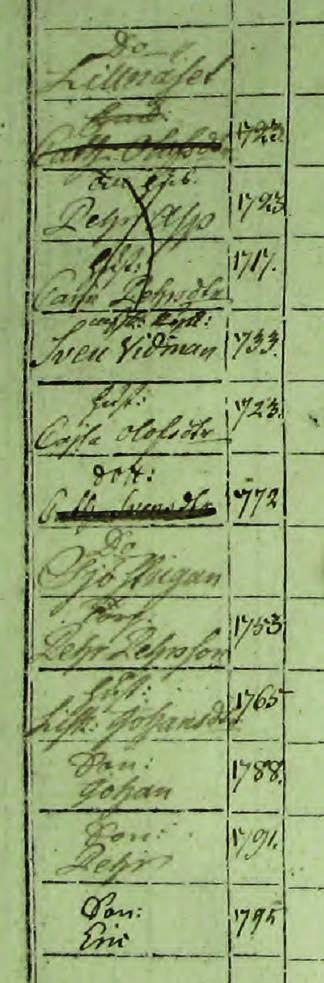 Do
Lillnäset
Cath. Olufsdr 1723.
Pehr Asp 1723
hust:
Carin Pehrsdtr 1717.
Sven Vidman 1733.
hust:
Cajsa Olofsdtr 1723.
dott:
Svensdtr 1772
Do
Sjöstugan
Torp.
Pehr Pehrsson 1753
hust:
Lisk. Johansdr 1765
Son:
Johan 1788.
Son:
Pehr 1791.
Son:
Eric 1795